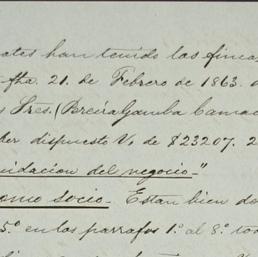 ates han tenido las fincas
fha. 21. de Febrero de 1863.
s Sres. (Breéa Gamba Camac
der dispuesto V. de $23207. 2
uidacion del negocio."
como socio. Estan bien do
5.° en los parrafos 1.° al 8.°